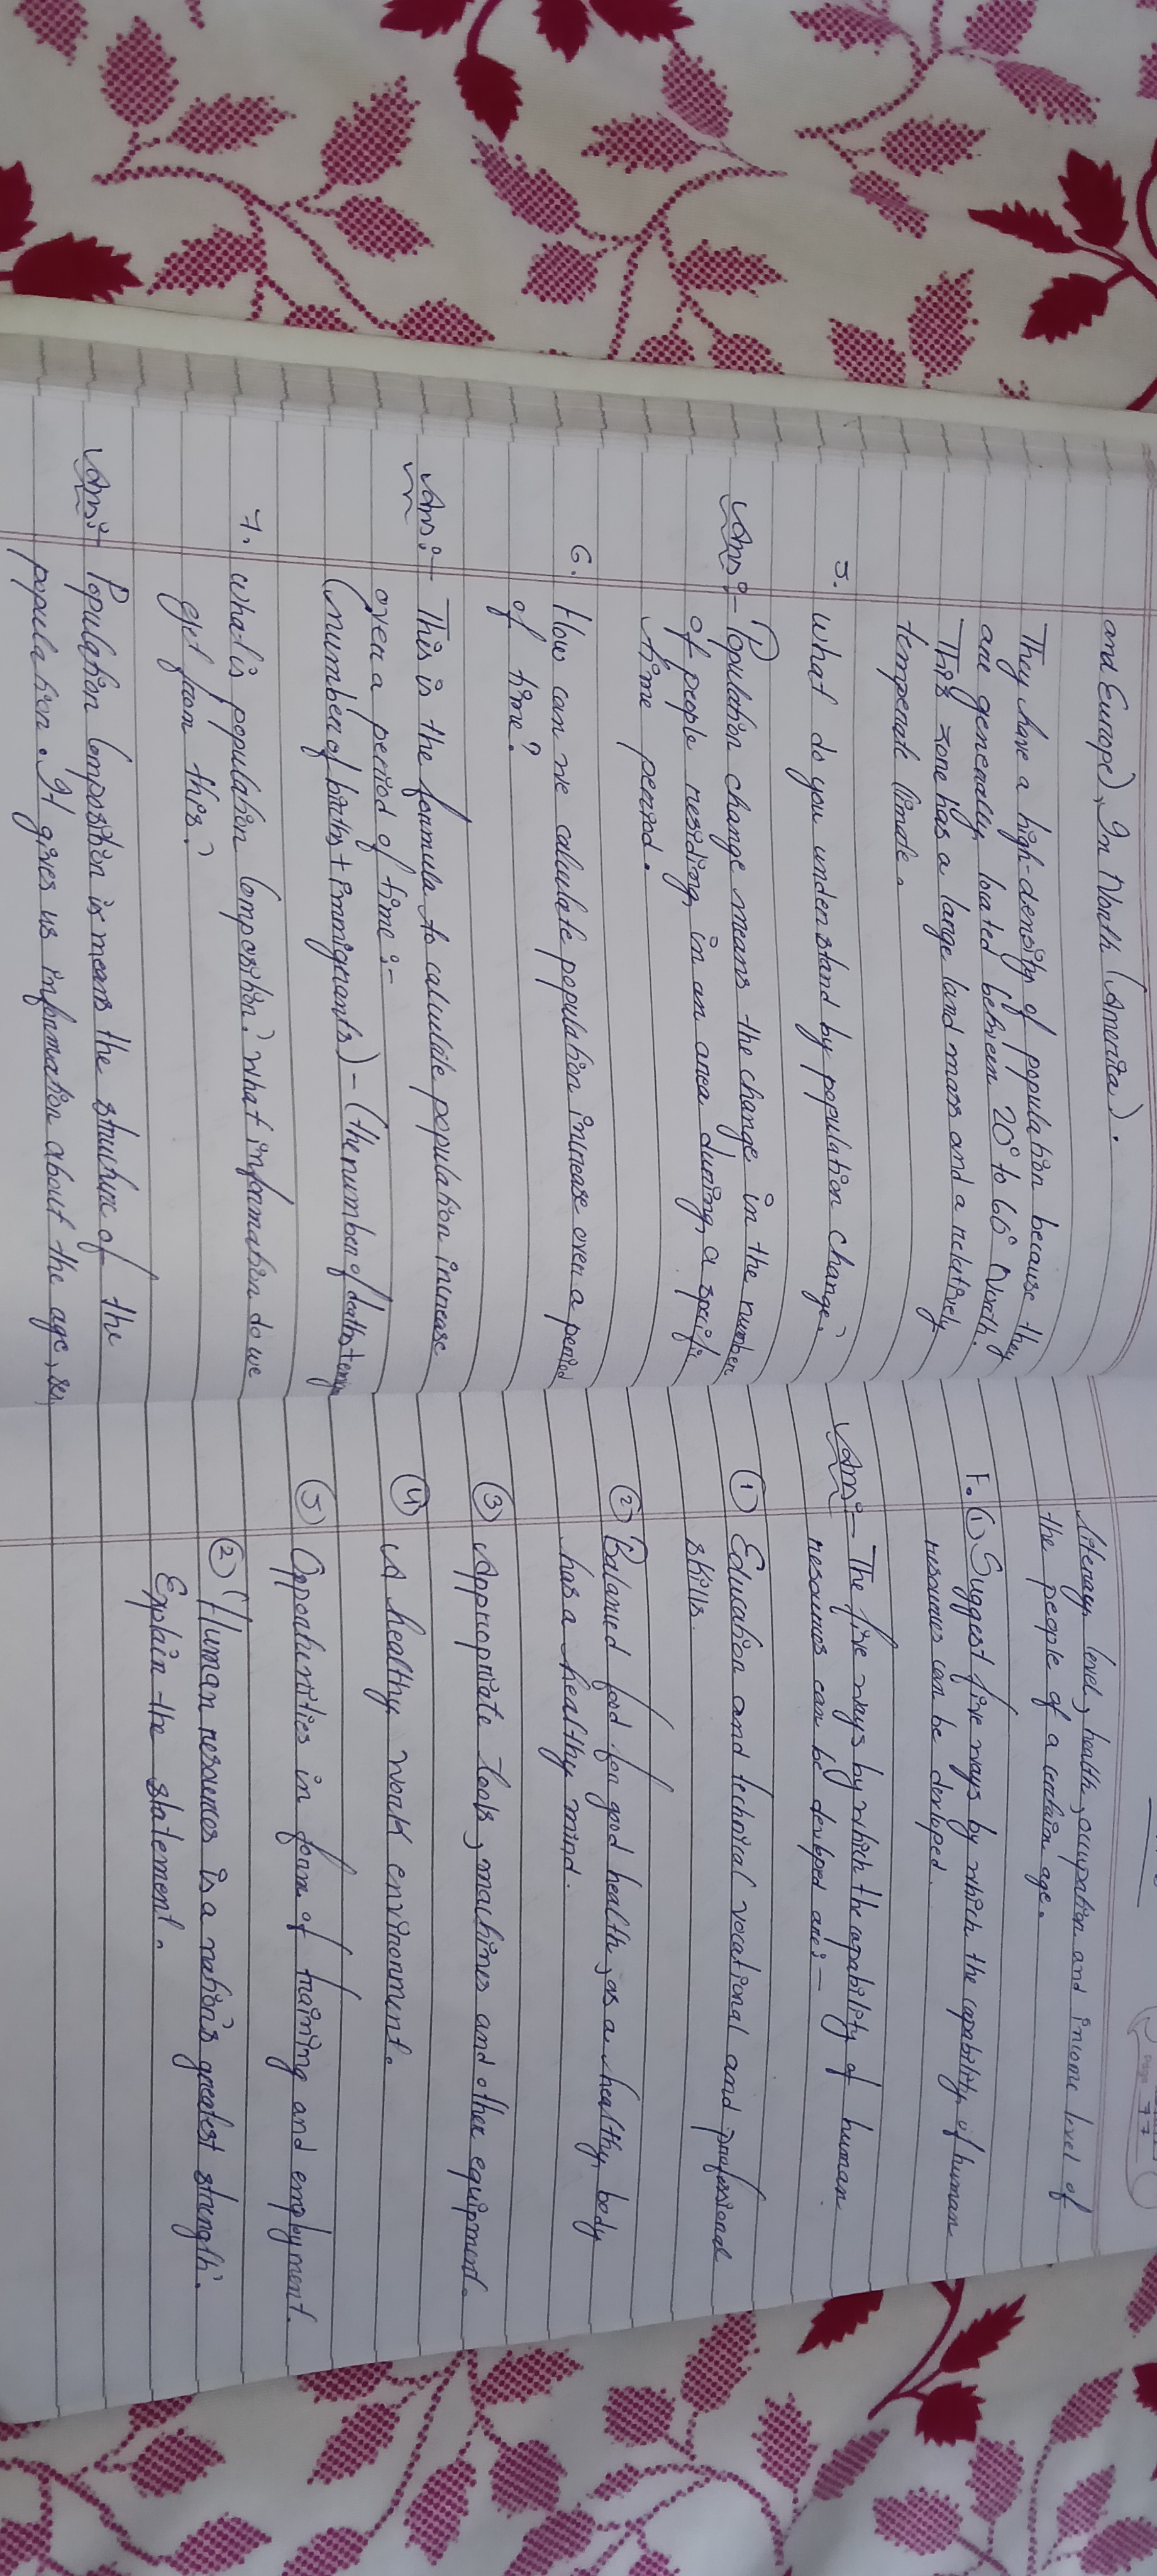 and Europe), In North (America).
They have a high-density of population because they
are generally located between 20° to 60° North.
This zone has a large land mass and a relatively
temperate climate.
5. What do you understand by population change?
Ans:- Population change means the change in the number
of people residing in an area during a specific
time period.
6. How can we calculate population increase over a period
of time?
Ans:- This is the formula to calculate population increase
over a period of time:-
(number of births + immigrants) - (the number of deaths +
7. What is population composition? What information do we
get from this?
Ans:- Population Composition is means the structure of the
population. It gives us information about the age, sex,
Page 77
literacy level, health, occupation and income level of
the people of a certain age.
F. ① Suggest five ways by which the capability of human
resources can be developed.
Ans:- The five ways by which the capability of human
resources can be developed are:-
① Education and technical vocational and professional
skills.
② Balanced food for good health, as a healthy body
has a healthy mind.
③ Appropriate tools, machines and other equipment.
④ A healthy work environment.
⑤ Opportunities in form of training and employment.
② 'Human resources is a nation's greatest strength'.
Explain the statement.